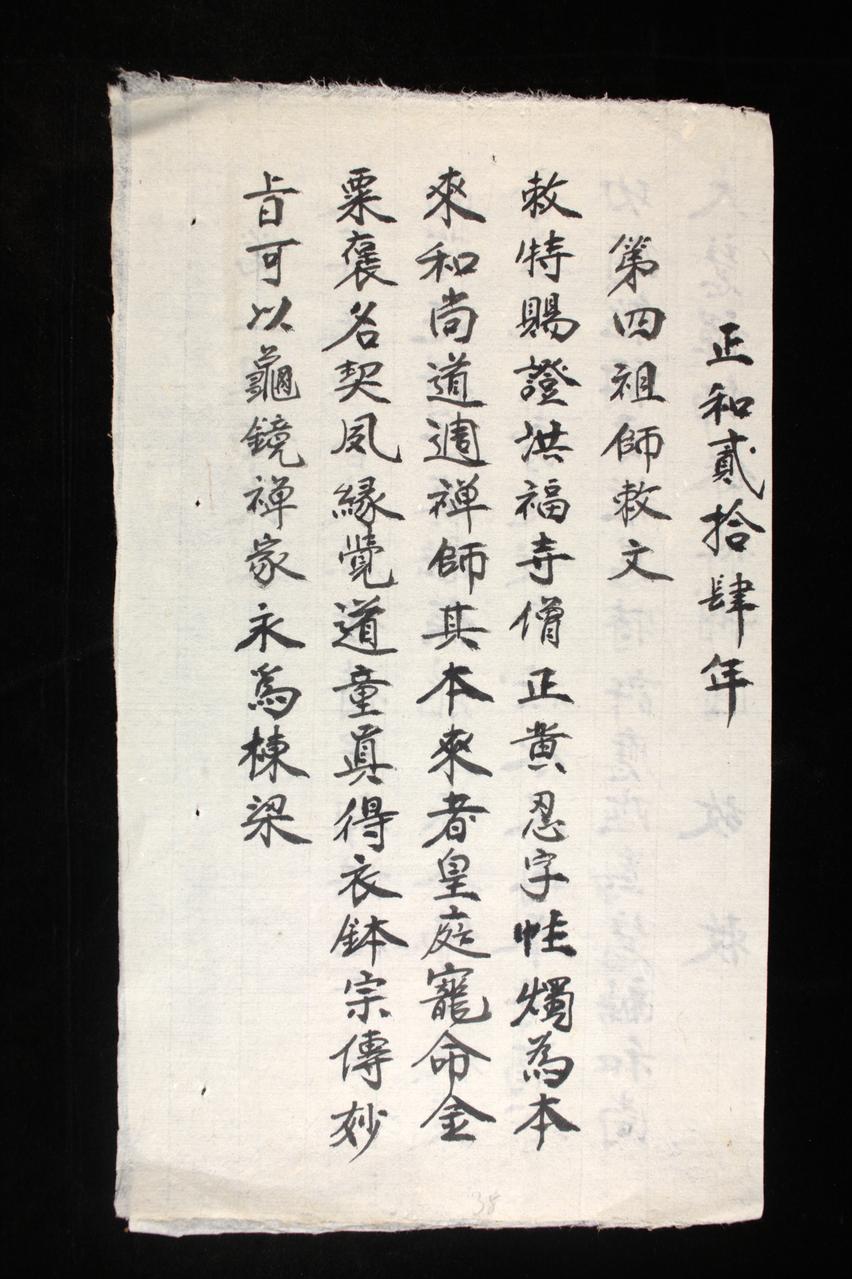 正和貳拾肆年
第四祖師敕文
敕特賜證洪福寺僧正黄忍字性燭為本
來和尚道週禅師其本來者皇庭寵命金
粟褒名契夙縁覺道童真得衣鉢宗傳妙
旨可以龜鏡禅家永為棟梁
38